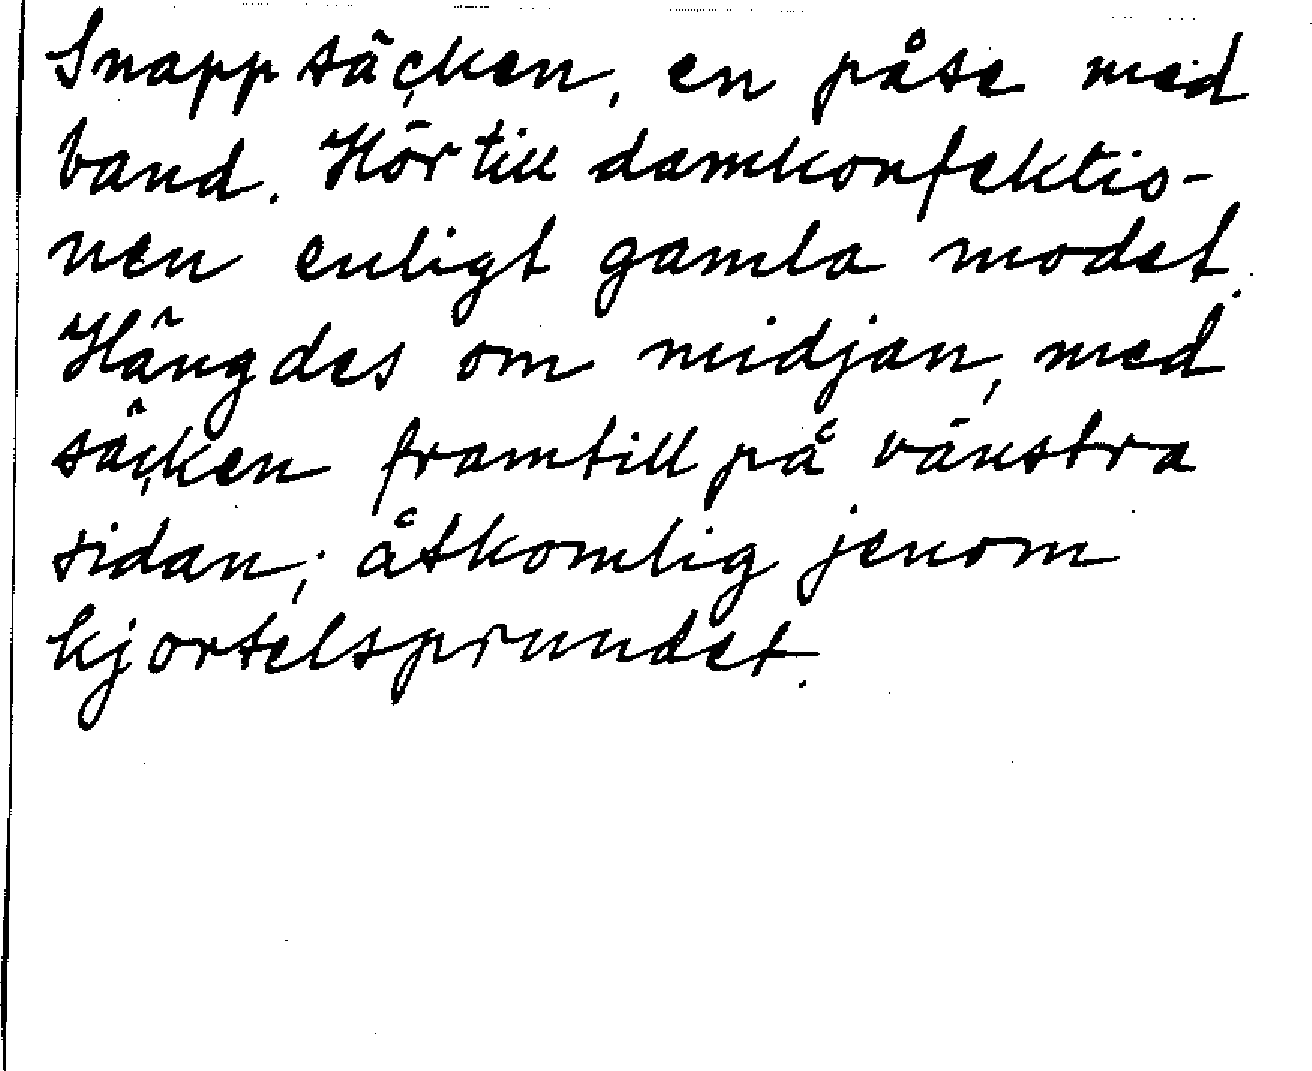 Snappsäcken, en påse med
band. Hör till damkonfektio-
nen enligt gamla modet.
Hängdes om midjan, med
säcken framtill på vänstra
sidan; åtkomlig jenom
kjortelsprundet.